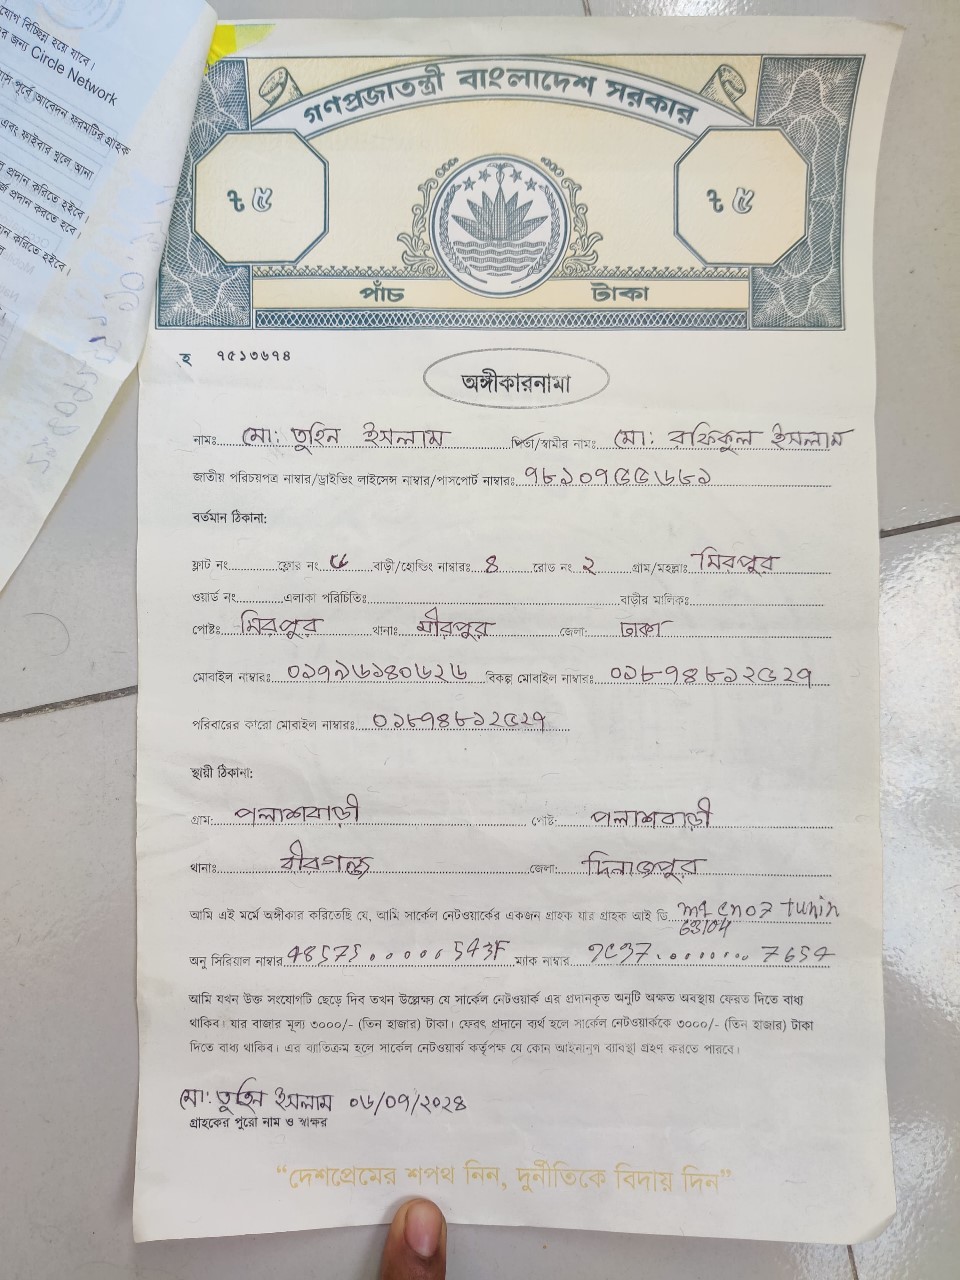 যোগ বিচ্ছিন্ন হয়ে যাবে।
র জন্য Circle Network
পূর্বে আবেদন ফরমটির গ্রাহক
এবং ফাইবার খুলে আনা
প্রদান করিতে হইবে।
র্জ প্রদান করতে হবে।
ান করিতে হইবে।
গণপ্রজাতন্ত্রী বাংলাদেশ সরকার
৳ ৫ ৳ ৫
পাঁচ টাকা
হ ৭৫১৩৬৭৪
অঙ্গীকারনামা
নামঃ মো: তুহিন ইসলাম পিতা/স্বামীর নাম: মো: রফিকুল ইসলাম
জাতীয় পরিচয়পত্র নাম্বার/ড্রাইভিং লাইসেন্স নাম্বার/পাসপোর্ট নাম্বারঃ ৭৮১০৭৫৫৬৮১
বর্তমান ঠিকানা:
ফ্লাট নং ফ্লোর নং ৫ বাড়ী/হোল্ডিং নাম্বারঃ ৪ রোড নং ২ গ্রাম/মহল্লাঃ মিরপুর
ওয়ার্ড নং এলাকা পরিচিতিঃ বাড়ীর মালিকঃ
পোষ্টঃ মিরপুর থানাঃ মীরপুর জেলা: ঢাকা
মোবাইল নাম্বারঃ ০১৭৭৬১৪০৬২৬ বিকল্প মোবাইল নাম্বারঃ ০১৮৭৪৮১২৫২৭
পরিবারের কারো মোবাইল নাম্বারঃ ০১৮৭৪৮১২৫২৭
স্থায়ী ঠিকানা:
গ্রাম: পলাশবাড়ী পোষ্ট: পলাশবাড়ী
থানাঃ বীরগঞ্জ জেলা: দিনাজপুর
আমি এই মর্মে অঙ্গীকার করিতেছি যে, আমি সার্কেল নেটওয়ার্কের একজন গ্রাহক যার গ্রাহক আই ডি. tuhin
63104
অনু সিরিয়াল নাম্বার 48575......543F ম্যাক নাম্বার 9C37........7654
আমি যখন উক্ত সংযোগটি ছেড়ে দিব তখন উল্লেক্ষ্য যে সার্কেল নেটওয়ার্ক এর প্রদানকৃত অনুটি অক্ষত অবস্থায় ফেরত দিতে বাধ্য
থাকিব। যার বাজার মূল্য ৩০০০/- (তিন হাজার) টাকা। ফেরৎ প্রদানে ব্যর্থ হলে সার্কেল নেটওয়ার্ককে ৩০০০/- (তিন হাজার) টাকা
দিতে বাধ্য থাকিব। এর ব্যাতিক্রম হলে সার্কেল নেটওয়ার্ক কর্তৃপক্ষ যে কোন আইনানুগ ব্যাবস্থা গ্রহণ করতে পারবে।
মো: তুহিন ইসলাম ০৬/০৭/২০২৪
গ্রাহকের পুরো নাম ও স্বাক্ষর
“দেশপ্রেমের শপথ নিন, দুর্নীতিকে বিদায় দিন”